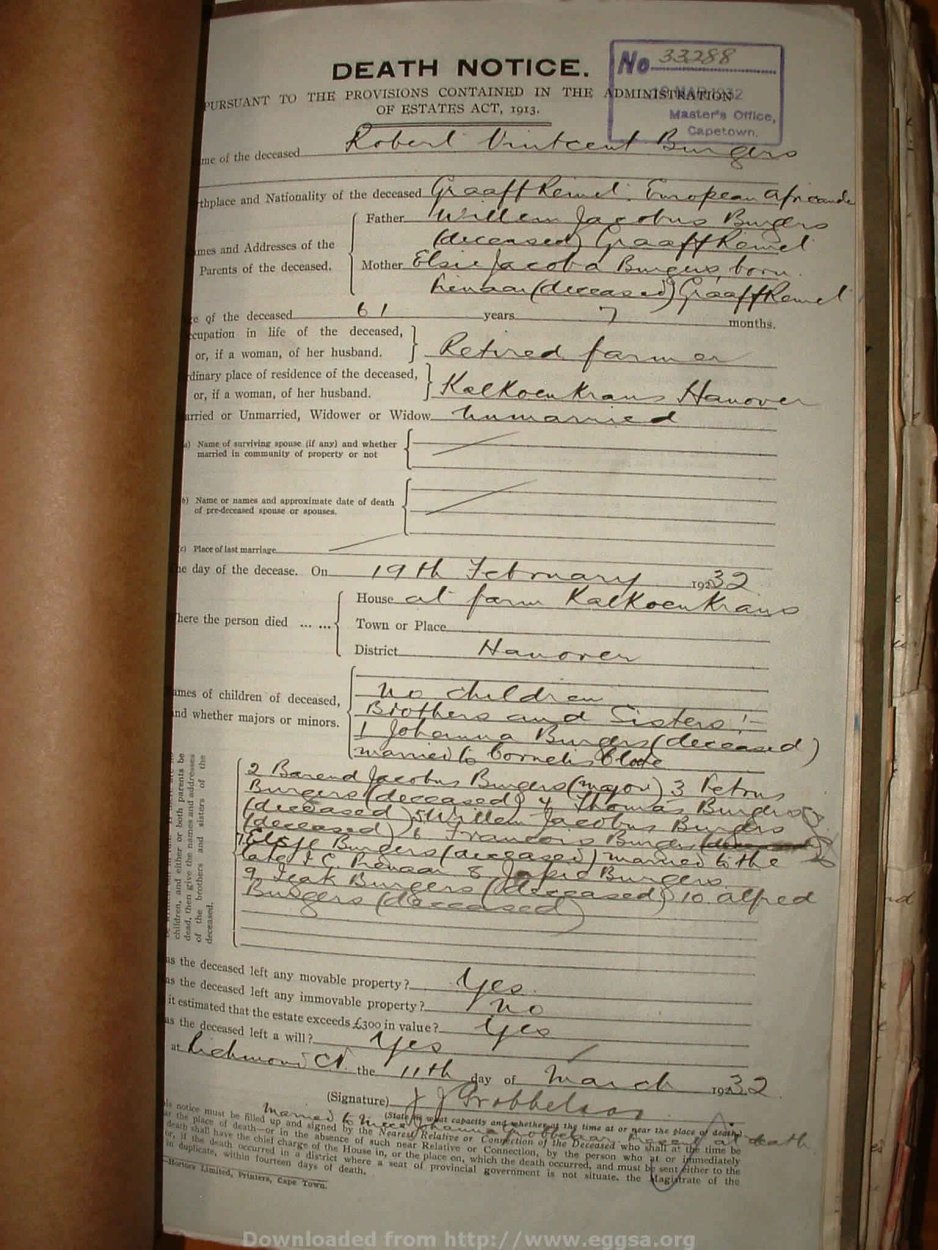 DEATH NOTICE.
No 33288
MAR 1932
Master's Office,
Capetown.
PURSUANT TO THE PROVISIONS CONTAINED IN THE ADMINISTRATION
OF ESTATES ACT, 1913.
me of the deceased Robert Vintcent Burgers
rthplace and Nationality of the deceased Graaff Reinet. European Africander
mes and Addresses of the
Parents of the deceased.
Father Willem Jacobus Burgers
(deceased) Graaff Reinet
Mother Elsie Jacoba Burgers, born
Pienaar (deceased) Graaff Reinet
e of the deceased 61 years 7 months.
cupation in life of the deceased,
or, if a woman, of her husband. Retired farmer
dinary place of residence of the deceased,
or, if a woman, of her husband. Kalkoenkrans Hanover
arried or Unmarried, Widower or Widow Unmarried
a) Name of surviving spouse (if any) and whether
married in community of property or not
b) Name or names and approximate date of death
of pre-deceased spouse or spouses.
(c) Place of last marriage
he day of the decease. On 19th February 1932
here the person died ... ...
House at farm Kalkoenkrans
Town or Place
District Hanover
ames of children of deceased,
and whether majors or minors.
no children
Brothers and Sisters :-
1 Johanna Burgers (deceased)
married to Cornelis Cloete
children, and either or both parents be
dead, then give the names and addresses
of the brothers and sisters of the
deceased.
2 Barend Jacobus Burgers (major) 3 Petrus
Burgers (deceased) 4 Thomas Burgers
(deceased) 5 Willem Jacobus Burgers
(deceased) 6 Francois Burgers
7 Elsje Burgers (deceased) married to the
late J. C. Pienaar 8 Burgers
9 Burgers (deceased) 10 Alfred
Burgers (deceased)
as the deceased left any movable property? Yes
as the deceased left any immovable property? no
it estimated that the estate exceeds £300 in value? Yes
as the deceased left a will? Yes
at Richmond the 11th day of March 1932
(Signature) J J Grobbelaar
(State in what capacity and whether at the time at or near the place of death)
married to niece Johanna Grobbelaar present at death
is notice must be filled up and signed by the Nearest Relative or Connection of the Deceased who shall at the time be
ar the place of death—or in the absence of such near Relative or Connection, by the person who at or immediately
death shall have the chief charge of the House in, or the place on, which the death occurred, and must be sent either to the
or, if the death occurred in a district where a seat of provincial government is not situate, the Magistrate of the
in duplicate, within fourteen days of death.
Hortors Limited, Printers, Cape Town.
Downloaded from http://www.eggsa.org